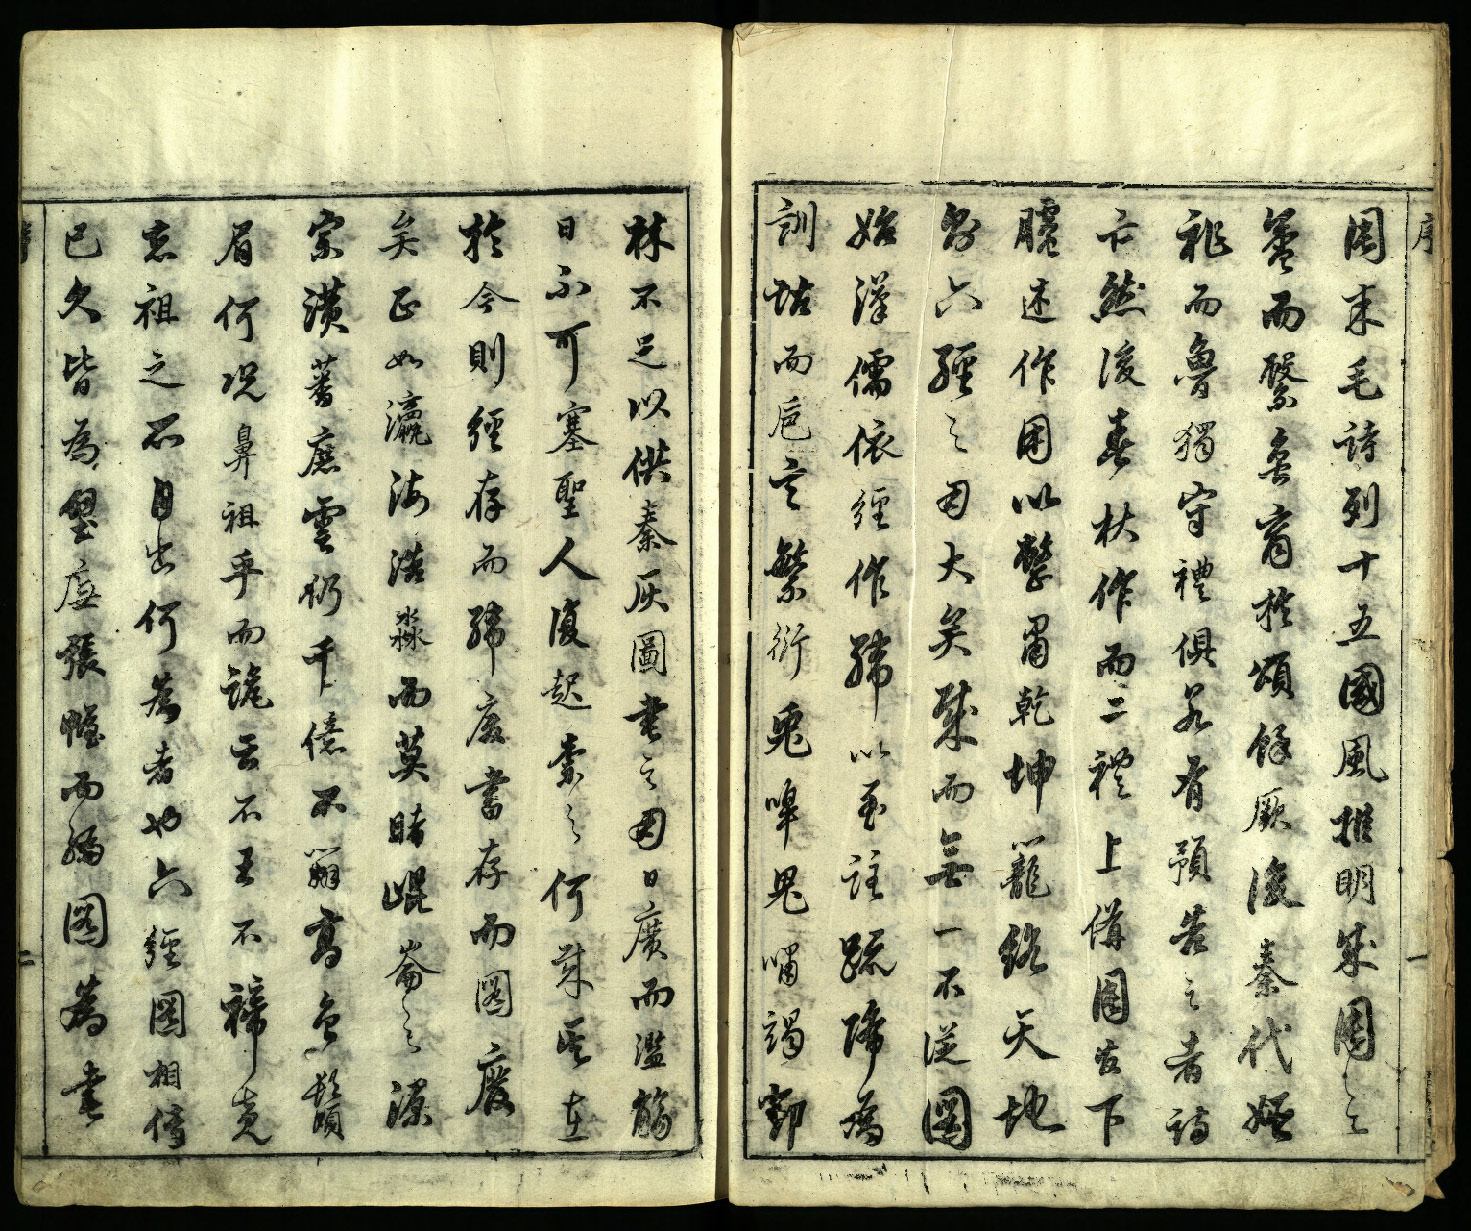 序
一
周末毛詩列十五國風推明成周之
盛而繫魯商於頌餘厥後秦代姬
祚而魯獨守禮俱若有預告之者詩
亡然後春秋作而二禮上備周官下
臚述作用以乾坤籠絡天地
六經之用大矣哉而無一不從圖
始漢儒依經作緯以至註疏降為
訓詁而卮言繁衍兔嗥鬼嘯
林不足以供秦灰圖書之用日廣而濫觴
日不可塞聖人復起索之何哉直
於今則經存而緯廢書存而圖廢
矣正如瀛海浩淼而莫睹崐崙之源
宗潢蕃庶雲礽千億不翦高鬚
眉何況鼻祖乎而説云不王不禘竟
忘祖之所自出何為者也六經圖相傳
已久皆為壁虛張幟而編圖為書
二